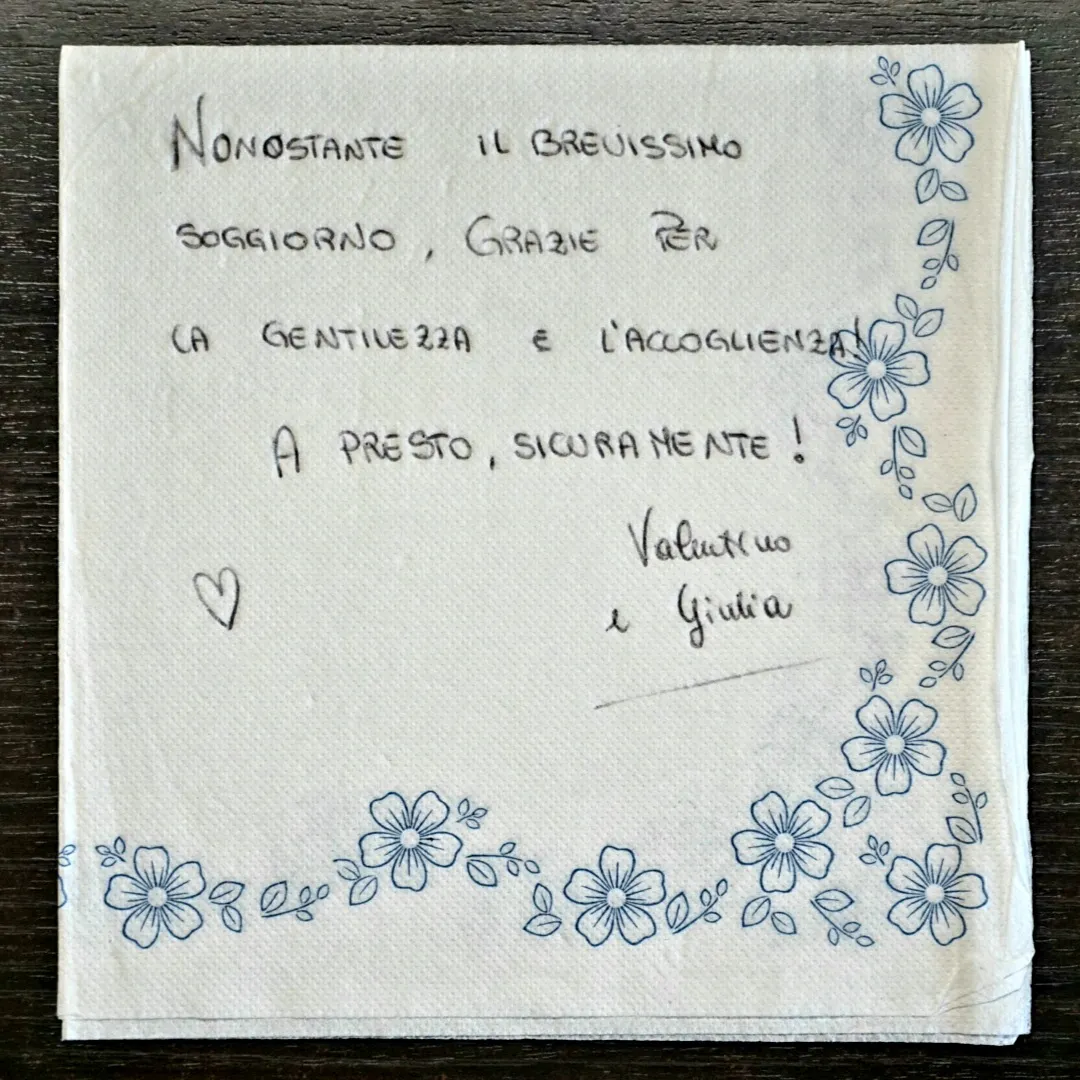 NONOSTANTE IL BREVISSIMO
SOGGIORNO, GRAZIE PER
LA GENTILEZZA E L'ACCOGLIENZA!
A PRESTO, SICURAMENTE!
Valentino
e Giulia